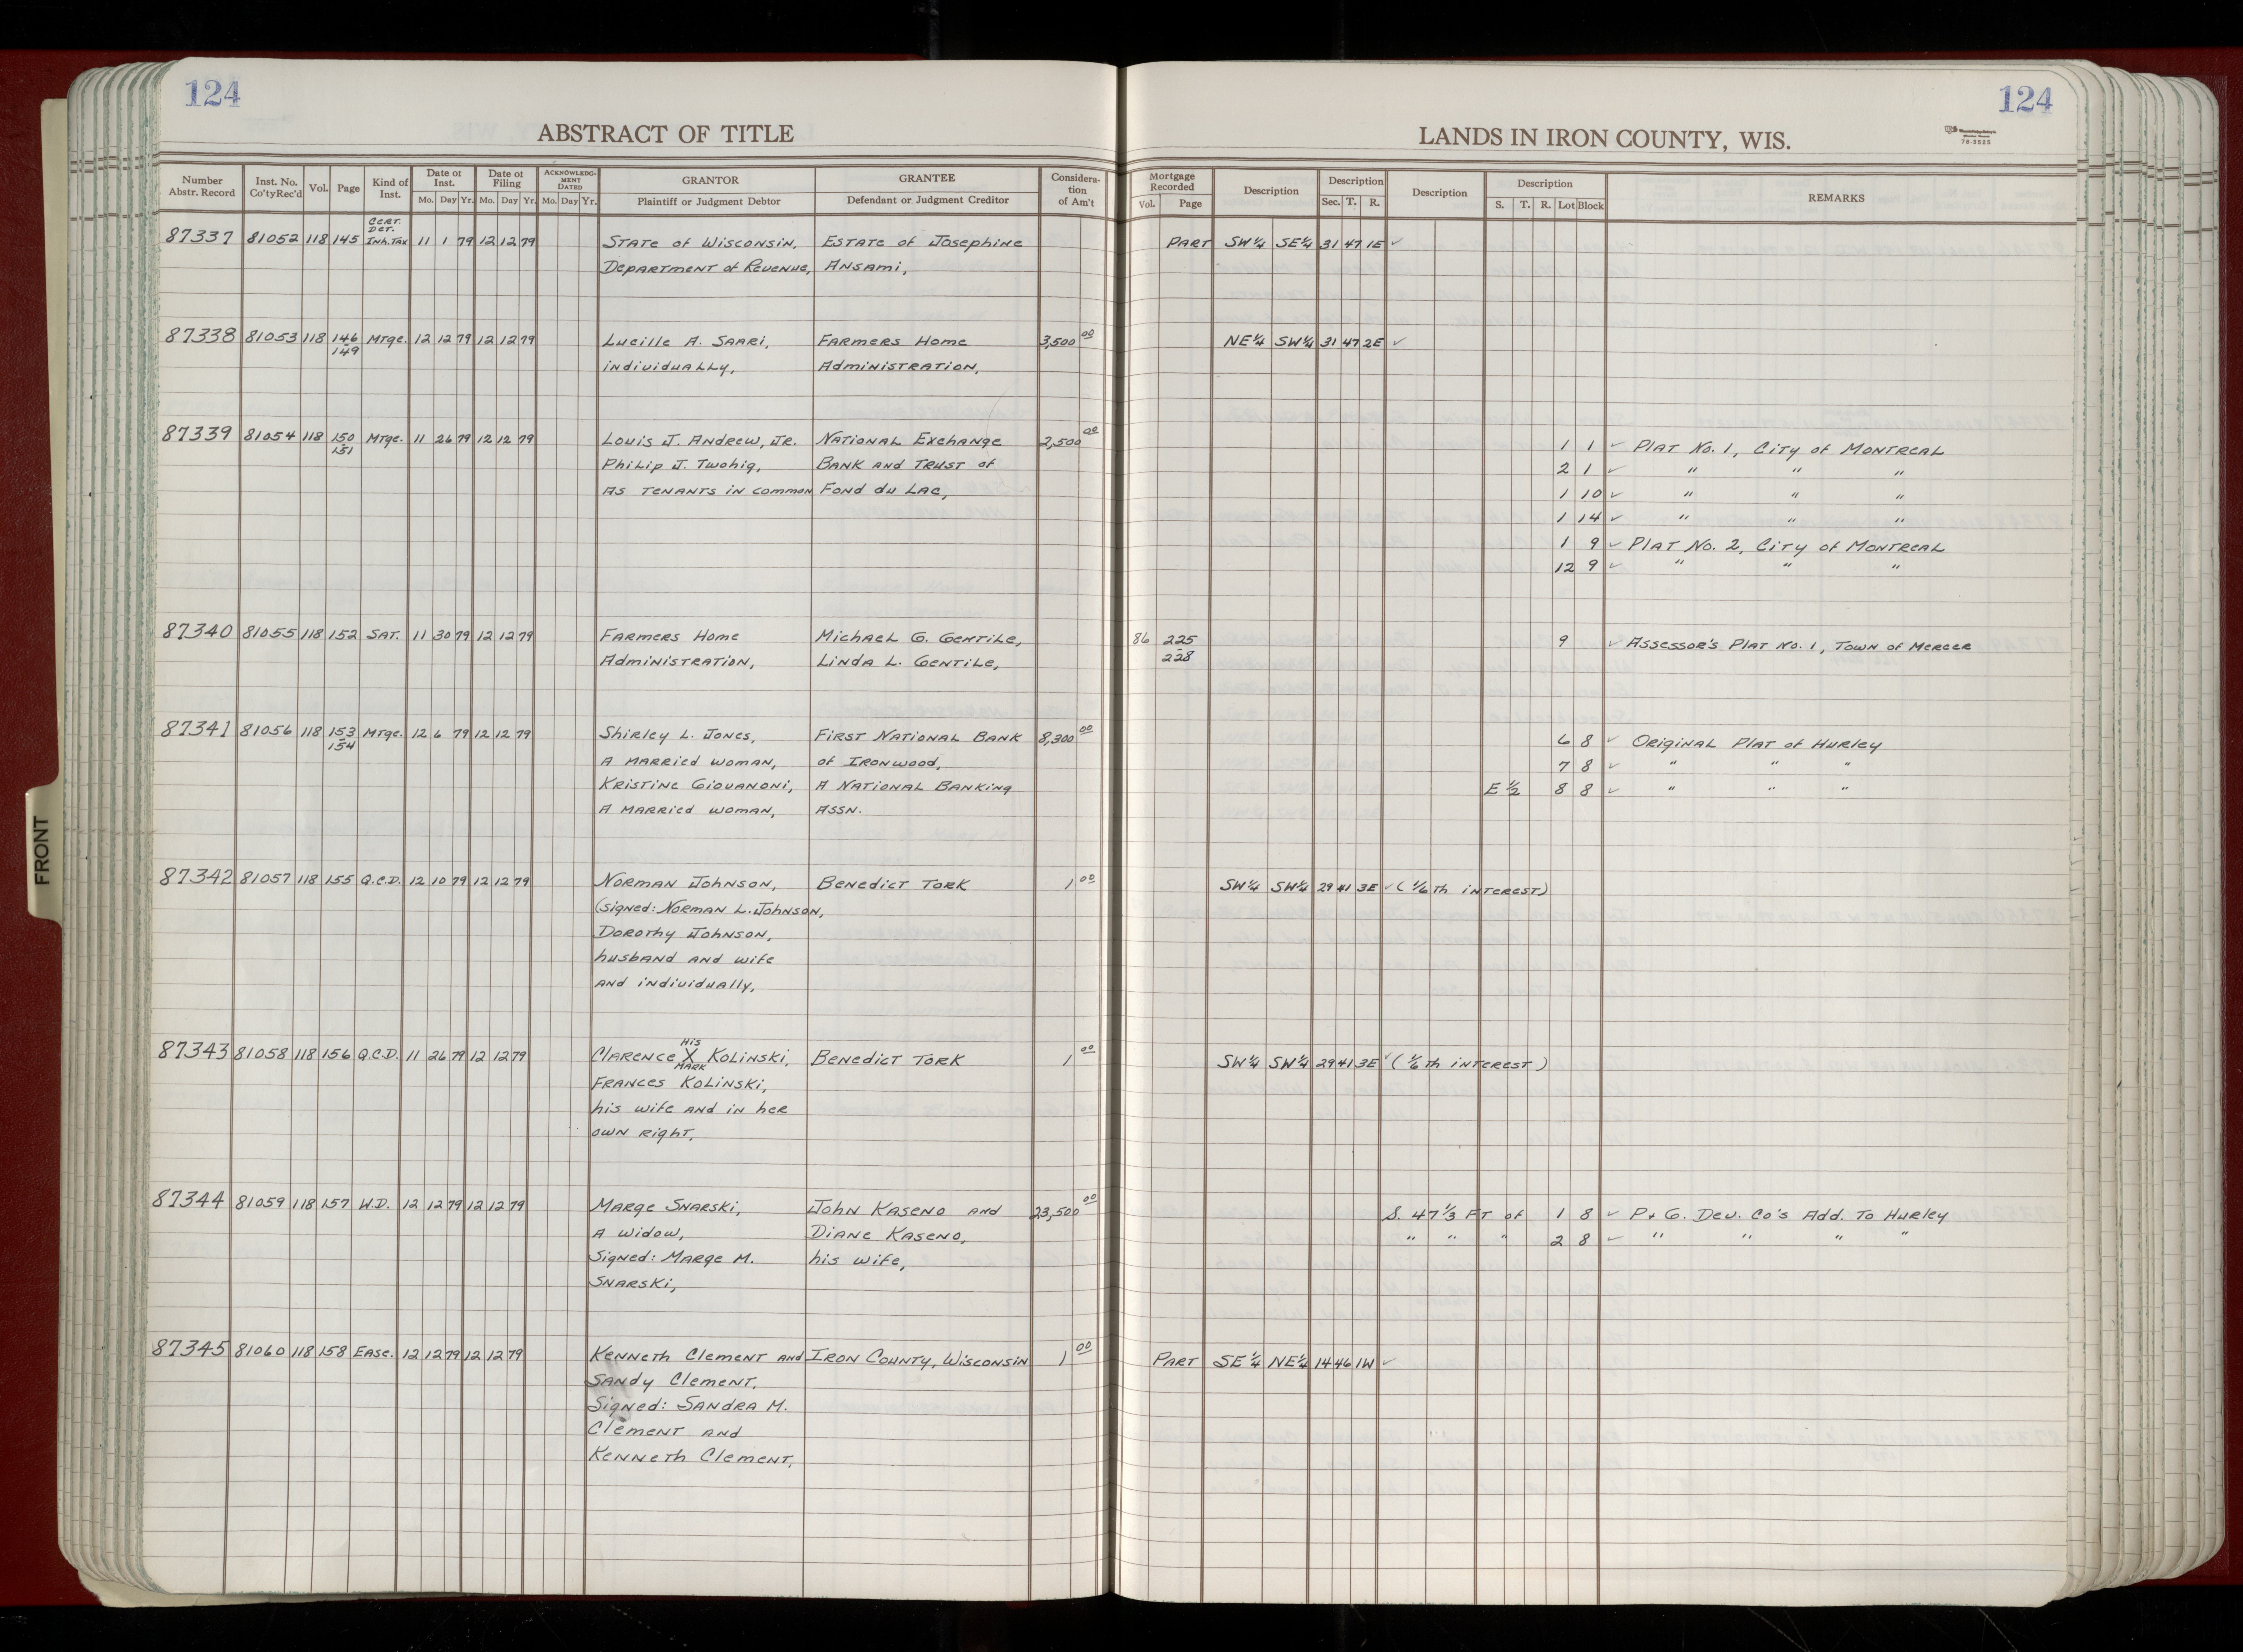 124
124
ABSTRACT OF TITLE
LANDS IN IRON COUNTY, WIS.
Number Abstr. Record | Inst. No. Co'tyRec'd | Vol. | Page | Kind of Inst. | Date of Inst. Mo. Day Yr. | Date of Filing Mo. Day Yr. | ACKNOWLEDGMENT DATED Mo. Day Yr. | GRANTOR Plaintiff or Judgment Debtor | GRANTEE Defendant or Judgment Creditor | Consideration of Am't | Mortgage Recorded Vol. Page | Description | Description Sec. T. R. | Description | Description S. T. R. Lot Block | REMARKS
CERT.
DET.
87337 81052 118 145 Inh.TAX 11 1 79 12 12 79 STATE of WISCONSIN, ESTATE of Josephine PART SW¼ SE¼ 31 47 1E ✓
DEPARTMENT of REVENUE, ANSAMi,
87338 81053 118 146 MTge. 12 12 79 12 12 79 LuciLLe A. SAARi, FARMERS Home 3,500 00 NE¼ SW¼ 31 47 2E ✓
149 individuALLy, AdMiNiSTRATiON,
87339 81054 118 150 MTge. 11 26 79 12 12 79 Louis J. ANdREW, JR. NATiONAL ExchANge 2,500 00 1 1 ✓ PLAT No. 1, CiTy of MONTREAL
151 PhiLip J. Twohig, BANK ANd TRUST of 2 1 ✓ " " "
AS TENANTS iN common FoNd du LAC, 1 10 ✓ " " "
1 14 ✓ " " "
1 9 ✓ PLAT No. 2, CiTy of MONTREAL
12 9 ✓ " " "
87340 81055 118 152 SAT. 11 30 79 12 12 79 FARMERS Home MichAeL G. GENTiLe, 86 225 9 ✓ ASSESSOR'S PLAT No. 1, TOWN of MERCER
AdMiNiSTRATiON, LiNdA L. GENTiLe, 228
87341 81056 118 153 MTge. 12 6 79 12 12 79 ShiRLey L. JoNes, FiRST NATiONAL BANK 8,300 00 6 8 ✓ ORigiNAL PLAT of HuRLey
154 A MARRied WOMAN, of IRONwood, 7 8 ✓ " " "
KRiSTiNe GiovANONi, A NATiONAL BANKiNg E ½ 8 8 ✓ " " "
A MARRied WOMAN, ASSN.
87342 81057 118 155 Q.C.D. 12 10 79 12 12 79 NORMAN JohNSON, BeNedicT TORK 1 00 SW¼ SW¼ 29 41 3E ✓ (⅙ Th iNTEREST)
(SigNed: NORMAN L. JohNSON,
DOROThy JohNSON,
husbANd ANd wife
ANd iNdividuALLy,
His
87343 81058 118 156 Q.C.D. 11 26 79 12 12 79 CLARENCE X KOLiNSKi, BeNedicT TORK 1 00 SW¼ SW¼ 29 41 3E ✓ (⅙ Th iNTEREST)
MARK
FRANCES KOLiNSKi,
his wife ANd iN heR
OWN RighT,
87344 81059 118 157 W.D. 12 12 79 12 12 79 MARge SNARSKi, JohN KASeNO ANd 23,500 00 S. 47⅓ FT of 1 8 ✓ P+G. Dev. Co's Add. To HuRLey
A widow, DiANe KASeNO, " " " 2 8 ✓ " " " "
SigNed: MARge M. his wife,
SNARSKi,
87345 81060 118 158 EASe. 12 12 79 12 12 79 KeNNeTh CLemeNT ANd IRON CouNTy, WiSCONSiN 1 00 PART SE¼ NE¼ 14 46 1W ✓
SANdy CLemeNT,
SigNed: SANdRA M.
CLemeNT ANd
KeNNeTh CLemeNT.
FRONT